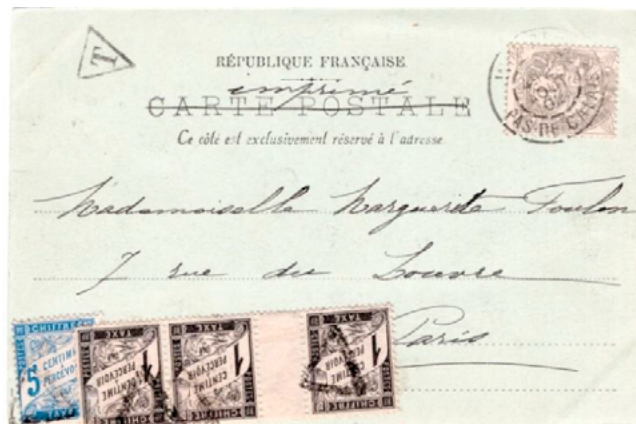 T
RÉPUBLIQUE FRANÇAISE
imprimé
CARTE POSTALE
Ce côté est exclusivement réservé à l'adresse
PAS-DE-CALAIS
Mademoiselle Marguerite Foulon
7 rue du Louvre
Paris
CHIFFRE TAXE
5 CENTIMES PERCEVOIR
CHIFFRE TAXE
1 CENTIME PERCEVOIR
CHIFFRE TAXE
1 CENTIME PERCEVOIR
CHIFFRE TAXE
1 CENTIME PERCEVOIR